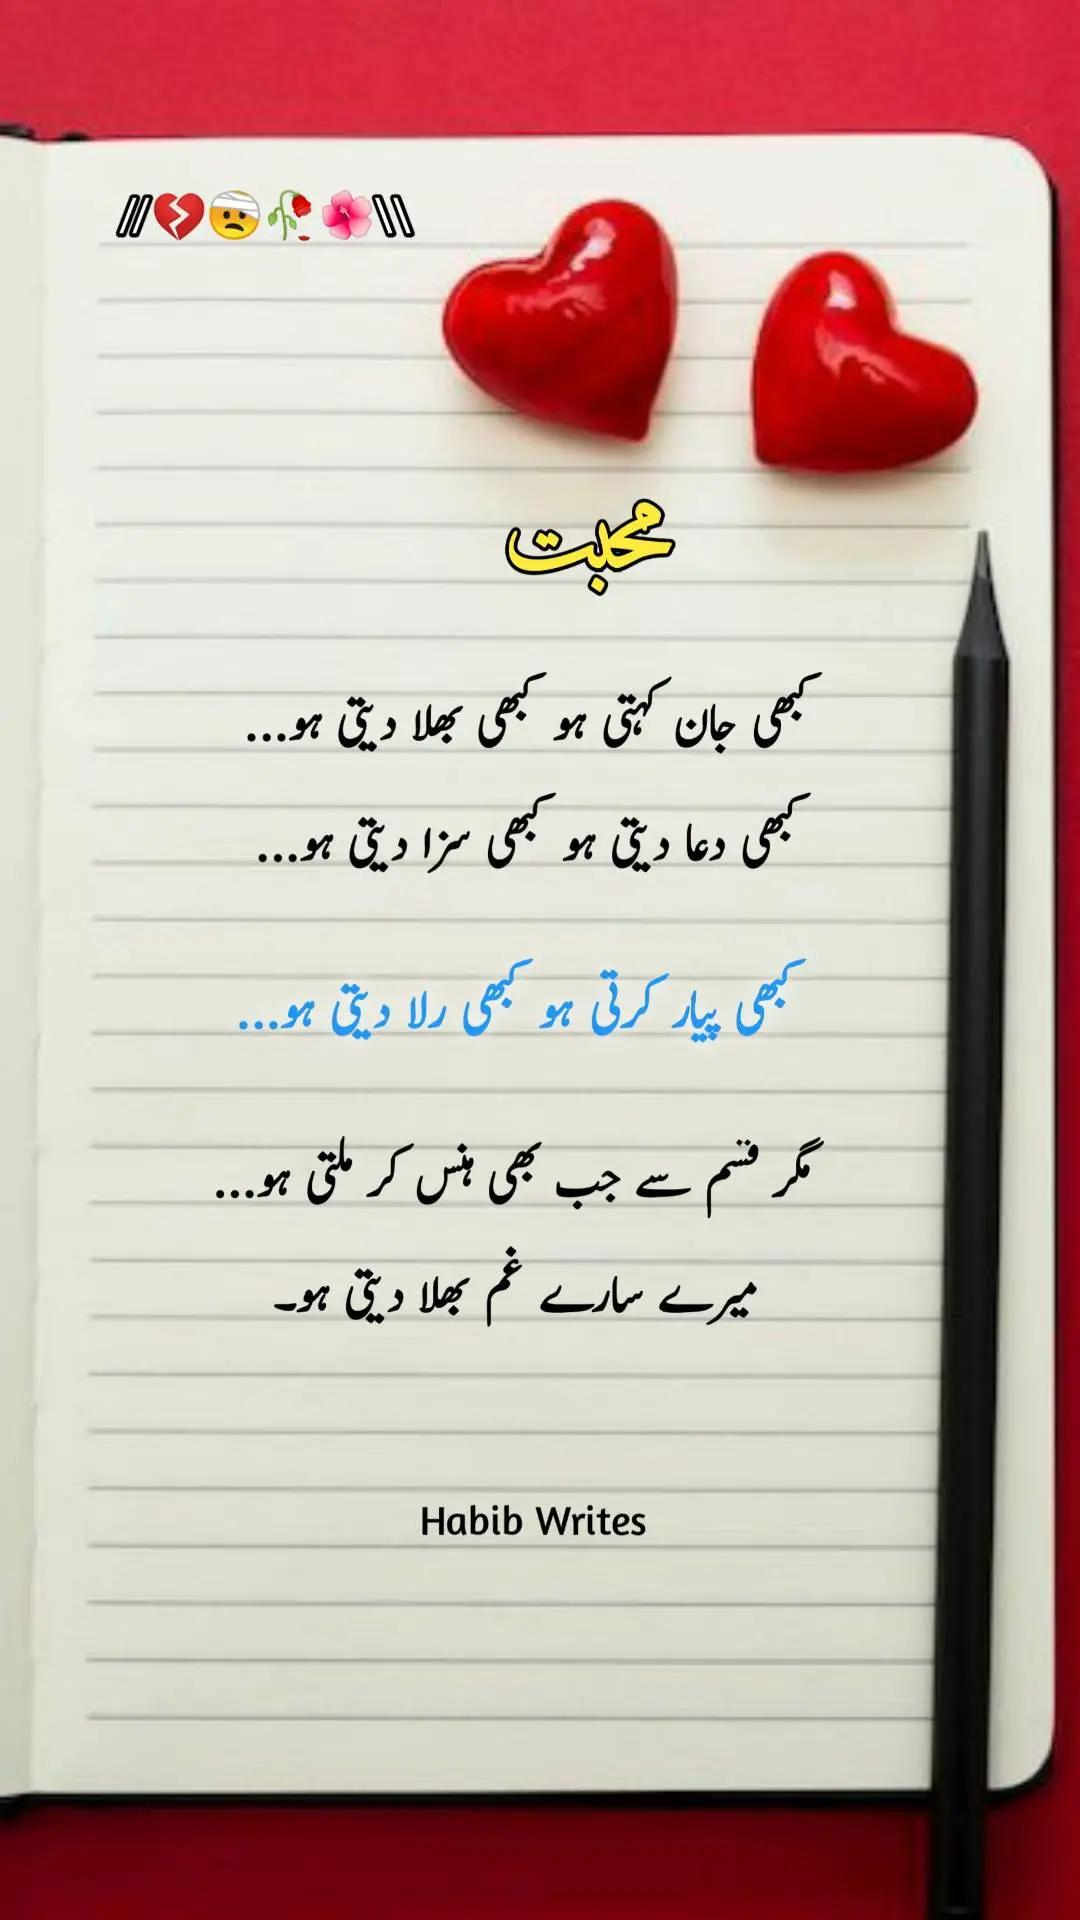 //💔🤕🥀🌺\\
محبت
کبھی جان کہتی ہو کبھی بھلا دیتی ہو...
کبھی دعا دیتی ہو کبھی سزا دیتی ہو...
کبھی پیار کرتی ہو کبھی رلا دیتی ہو...
مگر قسم سے جب بھی ہنس کر ملتی ہو...
میرے سارے غم بھلا دیتی ہو۔
Habib Writes